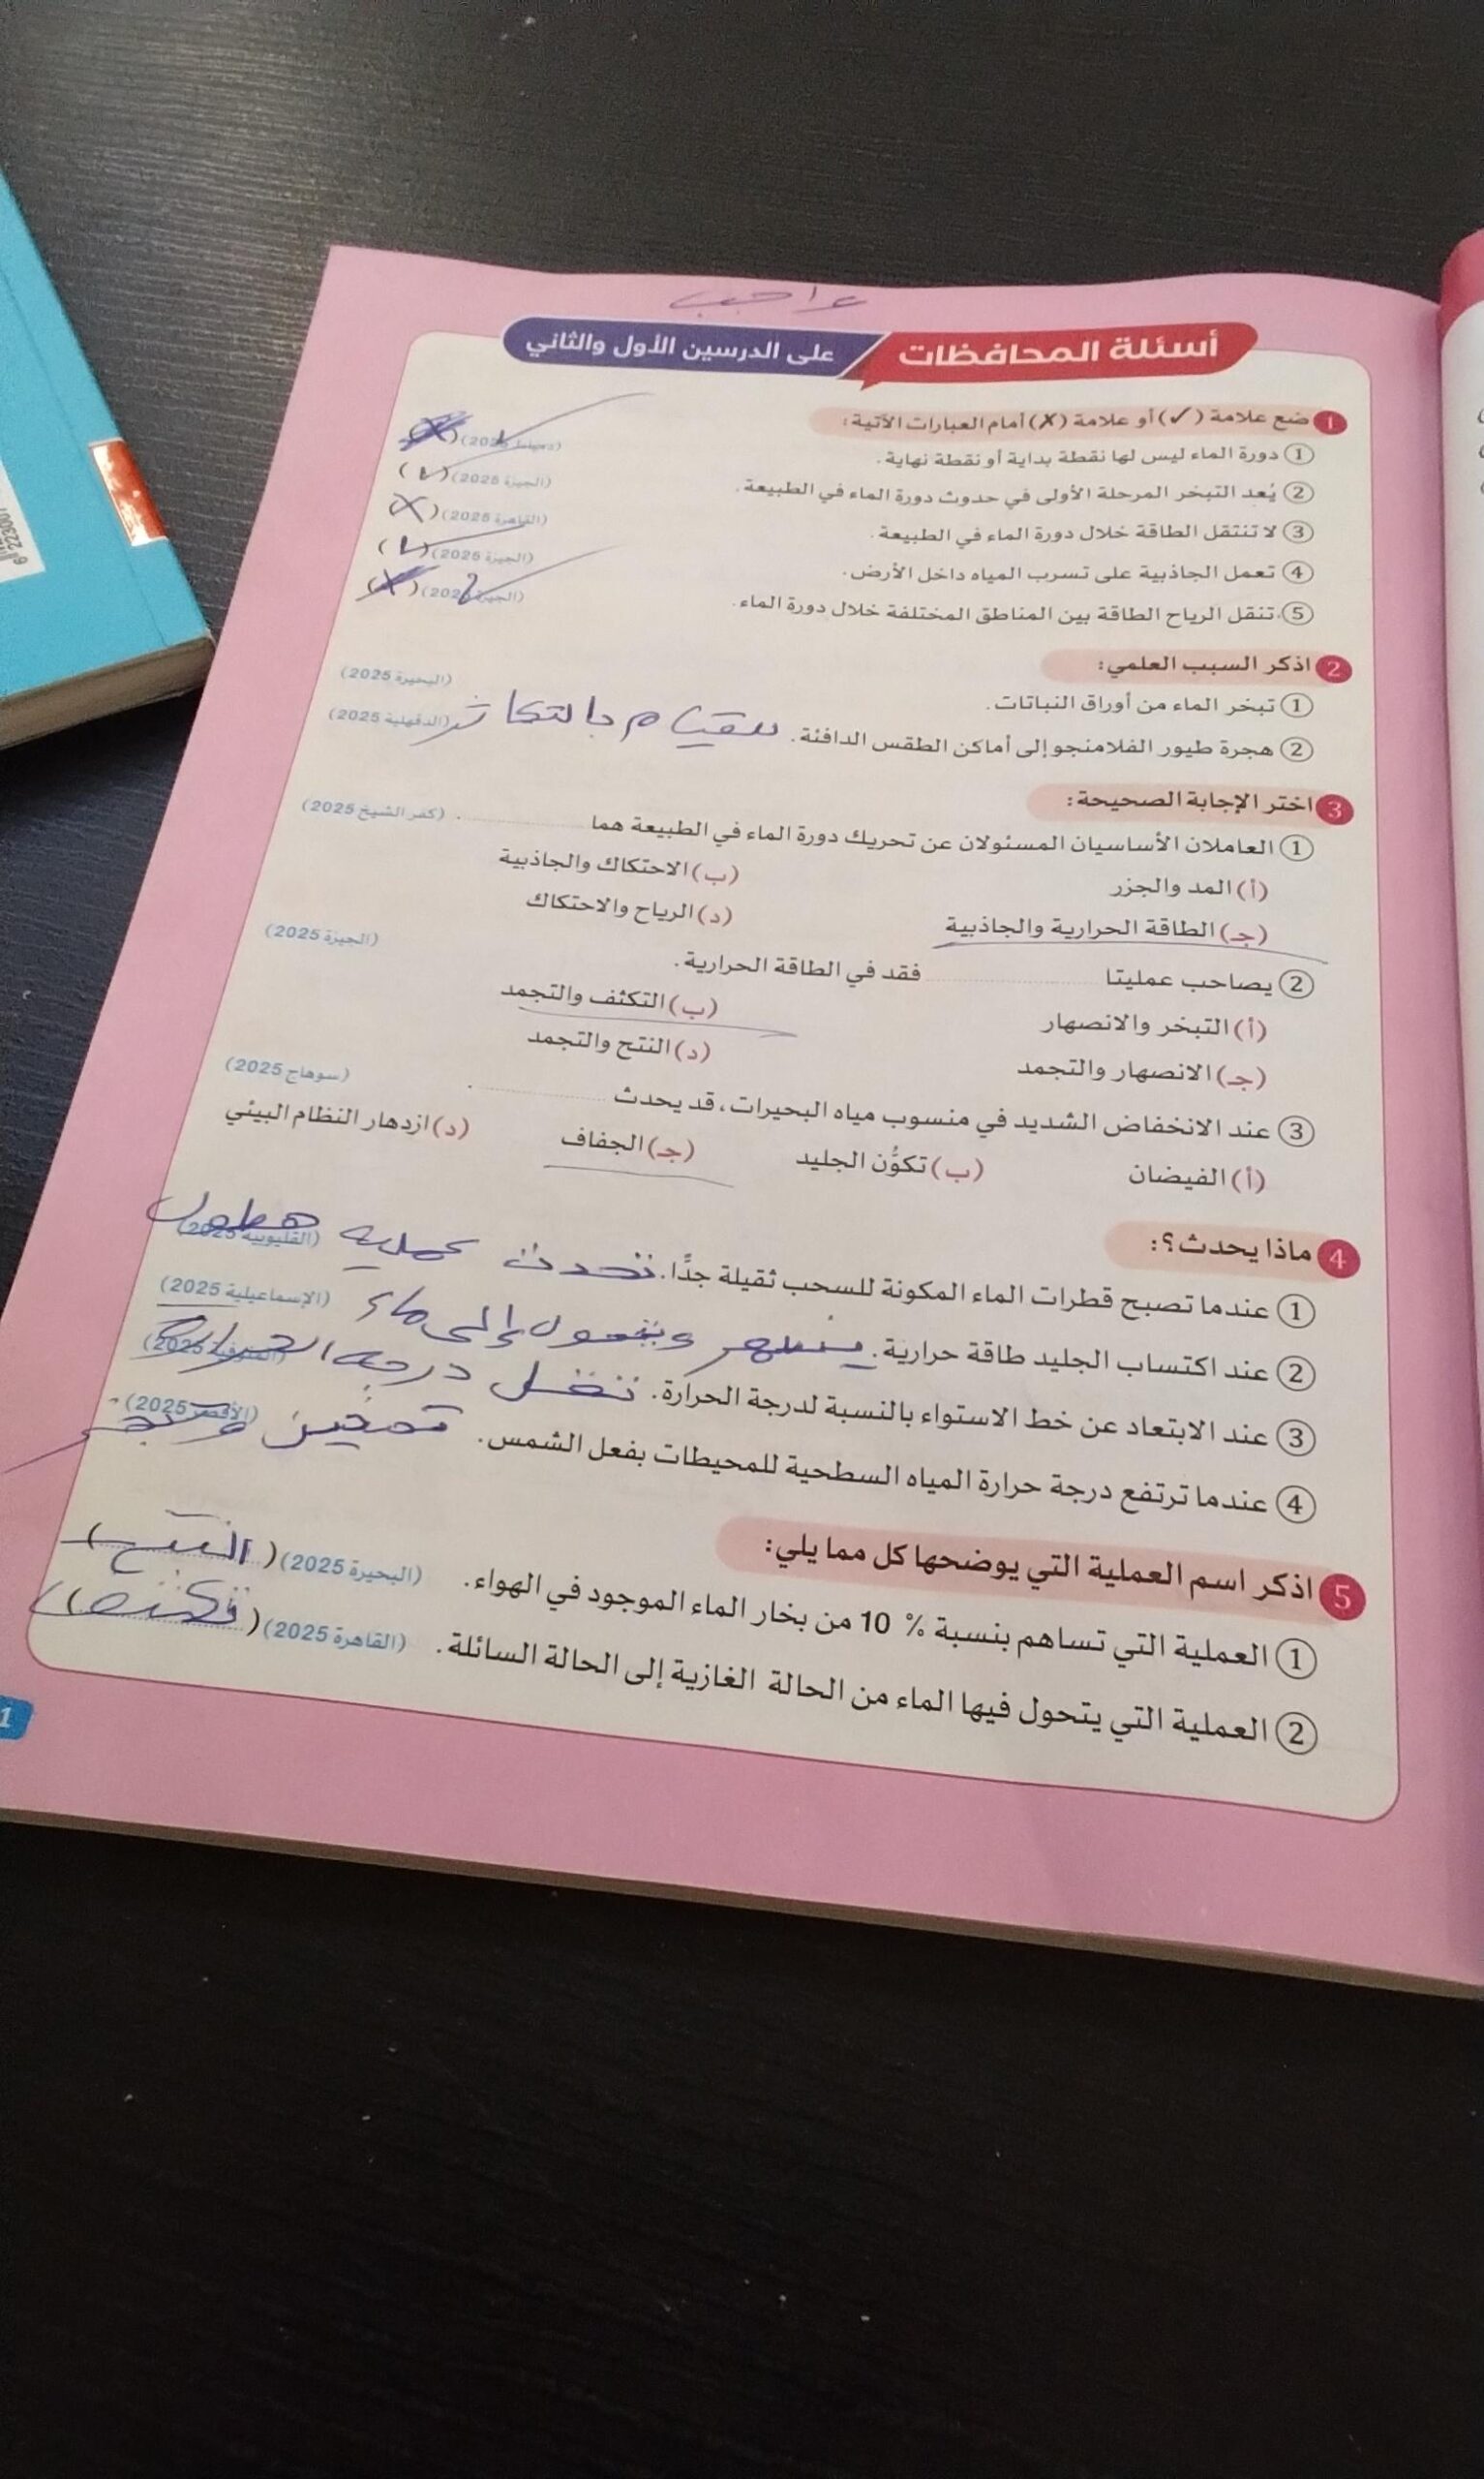 واجب
أسئلة المحافظات على الدرسين الأول والثاني
1 ضع علامة (✓) أو علامة (✗) أمام العبارات الآتية:
① دورة الماء ليس لها نقطة بداية أو نقطة نهاية. (دمياط 2025) ✓
② يُعد التبخر المرحلة الأولى في حدوث دورة الماء في الطبيعة. (الجيزة 2025) (✓)
③ لا تنتقل الطاقة خلال دورة الماء في الطبيعة. (القاهرة 2025) (✗)
④ تعمل الجاذبية على تسرب المياه داخل الأرض. (الجيزة 2025) (✓)
⑤ تنقل الرياح الطاقة بين المناطق المختلفة خلال دورة الماء. (الجيزة 2025) ✓
2 اذكر السبب العلمي:
① تبخر الماء من أوراق النباتات. (البحيرة 2025)
② هجرة طيور الفلامنجو إلى أماكن الطقس الدافئة. للقيام بالتكاثر (الدقهلية 2025)
3 اختر الإجابة الصحيحة:
① العاملان الأساسيان المسئولان عن تحريك دورة الماء في الطبيعة هما .......... . (كفر الشيخ 2025)
(أ) المد والجزر (ب) الاحتكاك والجاذبية
(جـ) الطاقة الحرارية والجاذبية (د) الرياح والاحتكاك
② يصاحب عمليتا .......... فقد في الطاقة الحرارية. (الجيزة 2025)
(أ) التبخر والانصهار (ب) التكثف والتجمد
(جـ) الانصهار والتجمد (د) النتح والتجمد
③ عند الانخفاض الشديد في منسوب مياه البحيرات، قد يحدث .......... . (سوهاج 2025)
(أ) الفيضان (ب) تكوُّن الجليد (جـ) الجفاف (د) ازدهار النظام البيئي
4 ماذا يحدث؟:
① عندما تصبح قطرات الماء المكونة للسحب ثقيلة جدًّا. تحدث عملية هطول (القليوبية 2025)
② عند اكتساب الجليد طاقة حرارية. ينصهر ويتحول إلى ماء (الإسماعيلية 2025)
③ عند الابتعاد عن خط الاستواء بالنسبة لدرجة الحرارة. تقل درجه الحرارة (المنوفية 2025)
④ عندما ترتفع درجة حرارة المياه السطحية للمحيطات بفعل الشمس. (الأقصر 2025)
5 اذكر اسم العملية التي يوضحها كل مما يلي:
① العملية التي تساهم بنسبة % 10 من بخار الماء الموجود في الهواء. (البحيرة 2025) (النتح)
② العملية التي يتحول فيها الماء من الحالة الغازية إلى الحالة السائلة. (القاهرة 2025)
1